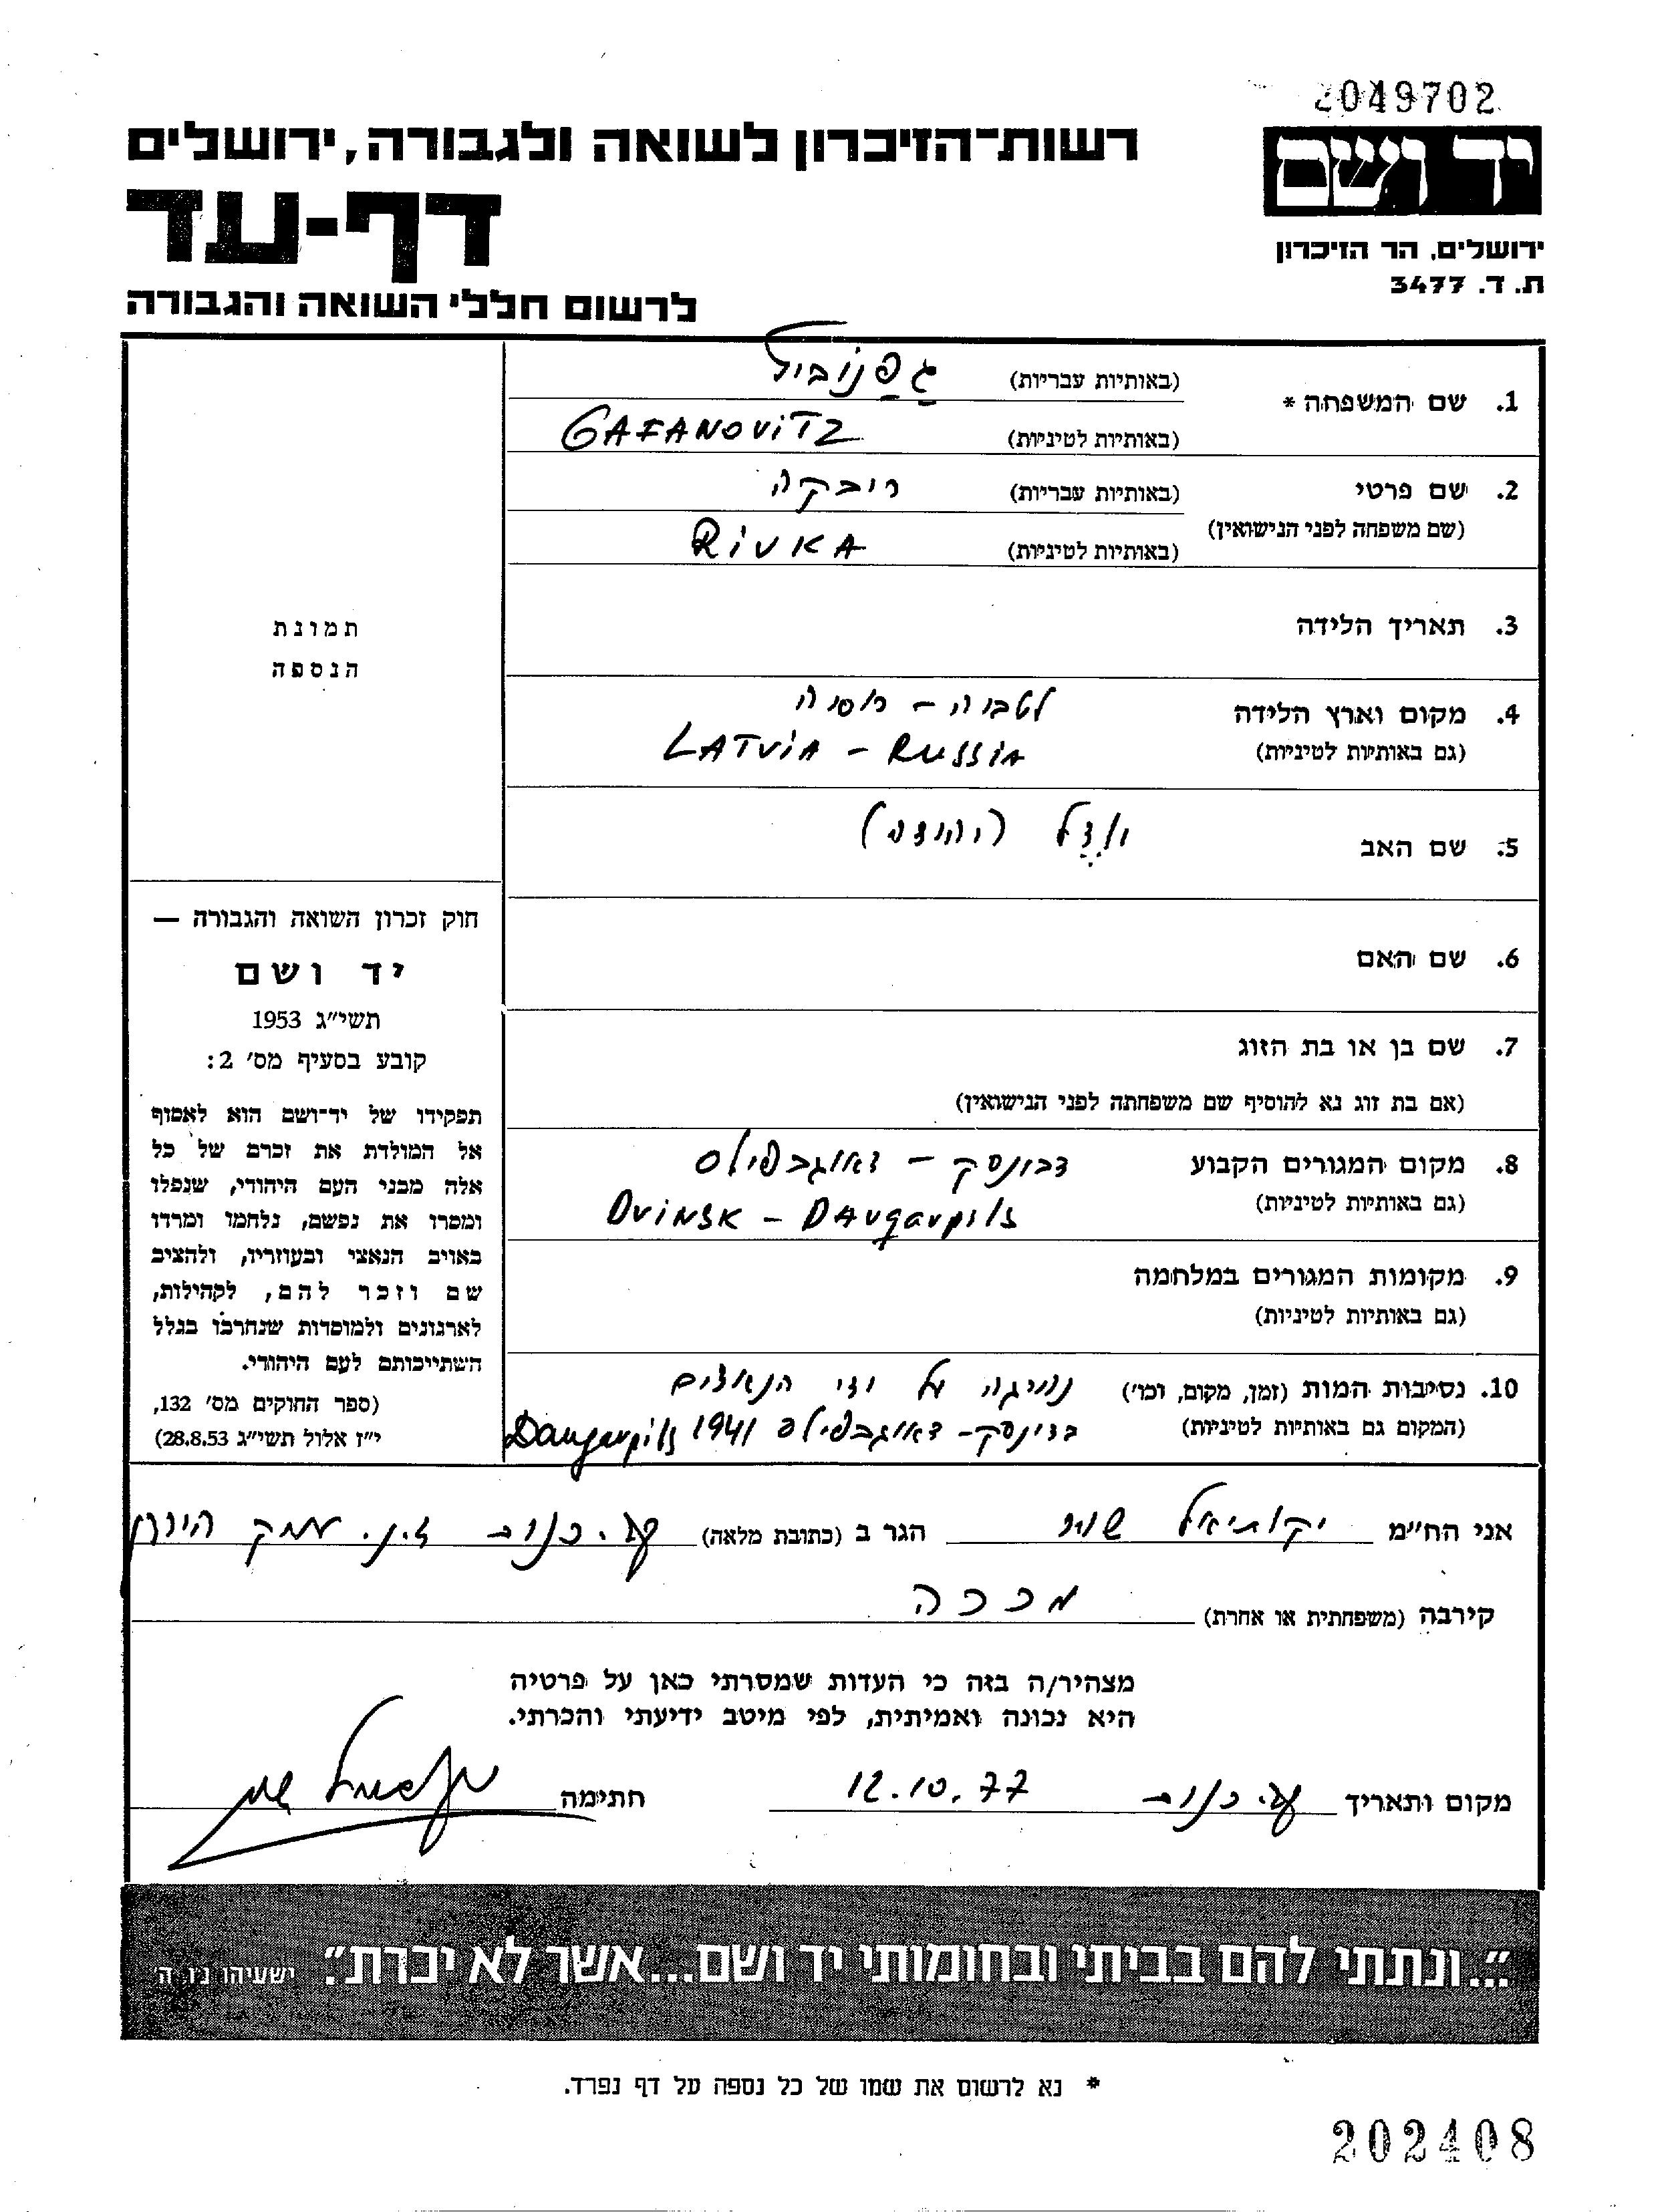 2049702
רשות־הזיכרון לשואה ולגבורה, ירושלים
יד ושם
דף-עד
ירושלים, הר הזיכרון
ת. ד. 3477
לרשום חללי השואה והגבורה
1. שם המשפחה *
(באותיות עבריות) גַפַנוֹביץ
(באותיות לטיניות) GAFANOVITZ
2. שם פרטי
(שם משפחה לפני הנישואין)
(באותיות עבריות) ריבקה
(באותיות לטיניות) RIVKA
3. תאריך הלידה
4. מקום וארץ הלידה לטביה – רוסיה
(גם באותיות לטיניות) LATVIA – RUSSIA
5. שם האב (יהודה)
6. שם האם
7. שם בן או בת הזוג
(אם בת זוג נא להוסיף שם משפחתה לפני הנישואין)
8. מקום המגורים הקבוע דבינסק – דאוגבפילס
(גם באותיות לטיניות) DVINSK – DAUgavpils
9. מקומות המגורים במלחמה
(גם באותיות לטיניות)
10. נסיבות המות (זמן, מקום, וכו') על ידי הנאצים
(המקום גם באותיות לטיניות) בדינסק – דאוגבפילס 1941 Daugavpils
תמונת
הנספה
חוק זכרון השואה והגבורה —
יד ושם
תשי״ג 1953
קובע בסעיף מס' 2:
תפקידו של יד־ושם הוא לאסוף
אל המולדת את זכרם של כל
אלה מבני העם היהודי, שנפלו
ומסרו את נפשם, נלחמו ומרדו
באויב הנאצי ובעוזריו, ולהציב
שם וזכר להם, לקהילות,
לארגונים ולמוסדות שנחרבו בגלל
השתייכותם לעם היהודי.
(ספר החוקים מס' 132,
י״ז אלול תשי״ג 28.8.53)
אני הח״מ יקותיאל הגר ב (כתובת מלאה) ד.נ. עמק הירדן
קירבה (משפחתית או אחרת) מכרה
מצהיר/ה בזה כי העדות שמסרתי כאן על פרטיה
היא נכונה ואמיתית, לפי מיטב ידיעתי והכרתי.
מקום ותאריך 12.10.77 חתימה
״...ונתתי להם בביתי ובחומותי יד ושם...אשר לא יכרת״. ישעיהו נ״ו ה'
* נא לרשום את שמו של כל נספה על דף נפרד.
202408